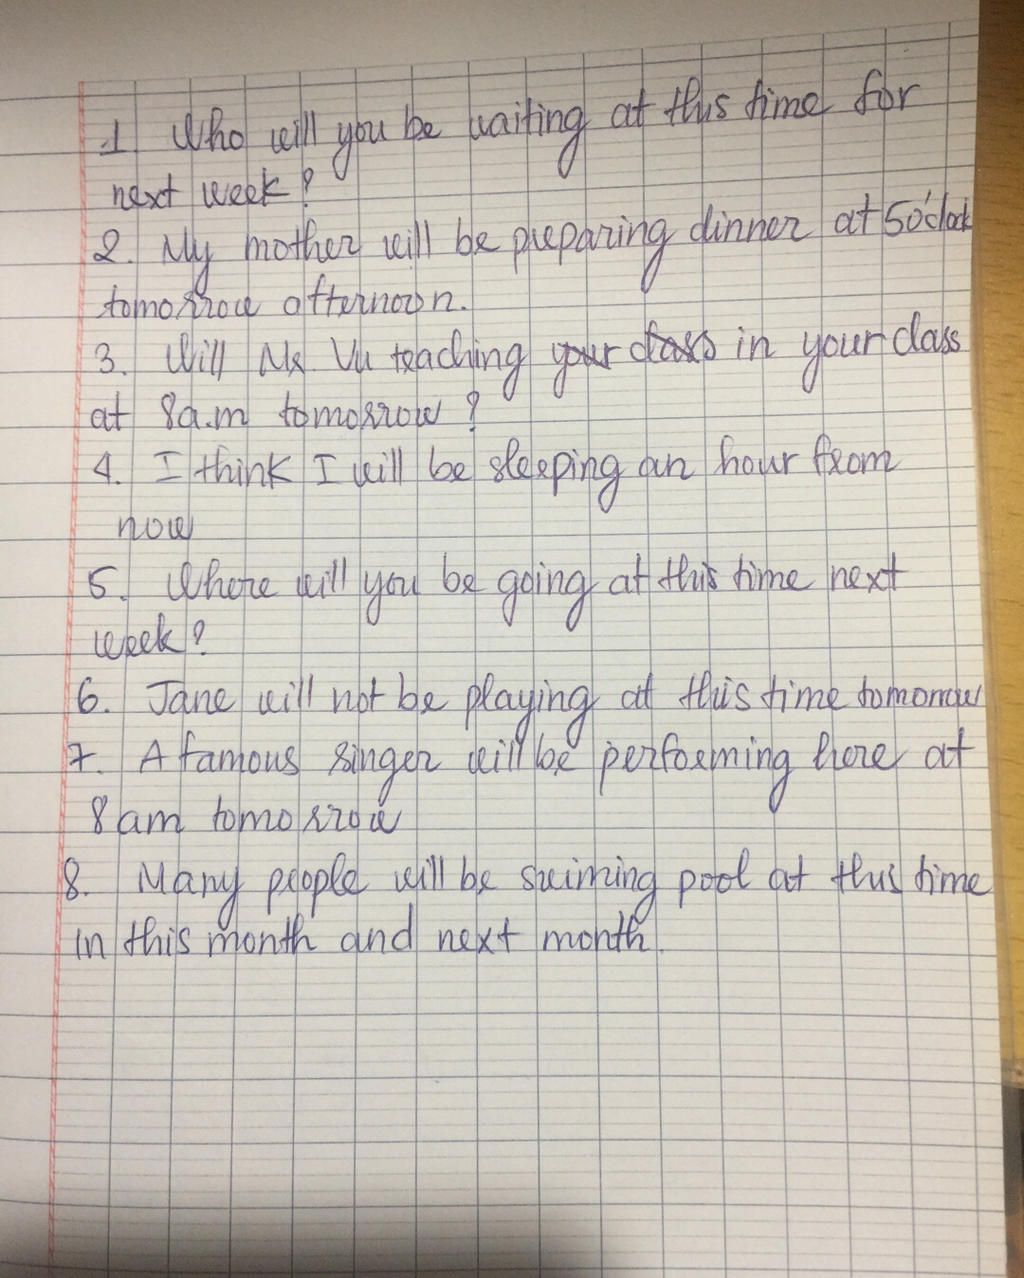 1. Who will you be waiting at this time for
next week?
2. My mother will be preparing dinner at 5o'clock
tomorrow afternoon.
3. Will Mr. Vu teaching your class in your class
at 8a.m tomorrow?
4. I think I will be sleeping an hour from
now
5. Where will you be going at this time next
week?
6. Jane will not be playing at this time tomorrow
7. A famous singer will be performing here at
8am tomorrow
8. Many people will be swiming pool at this time
in this month and next month.